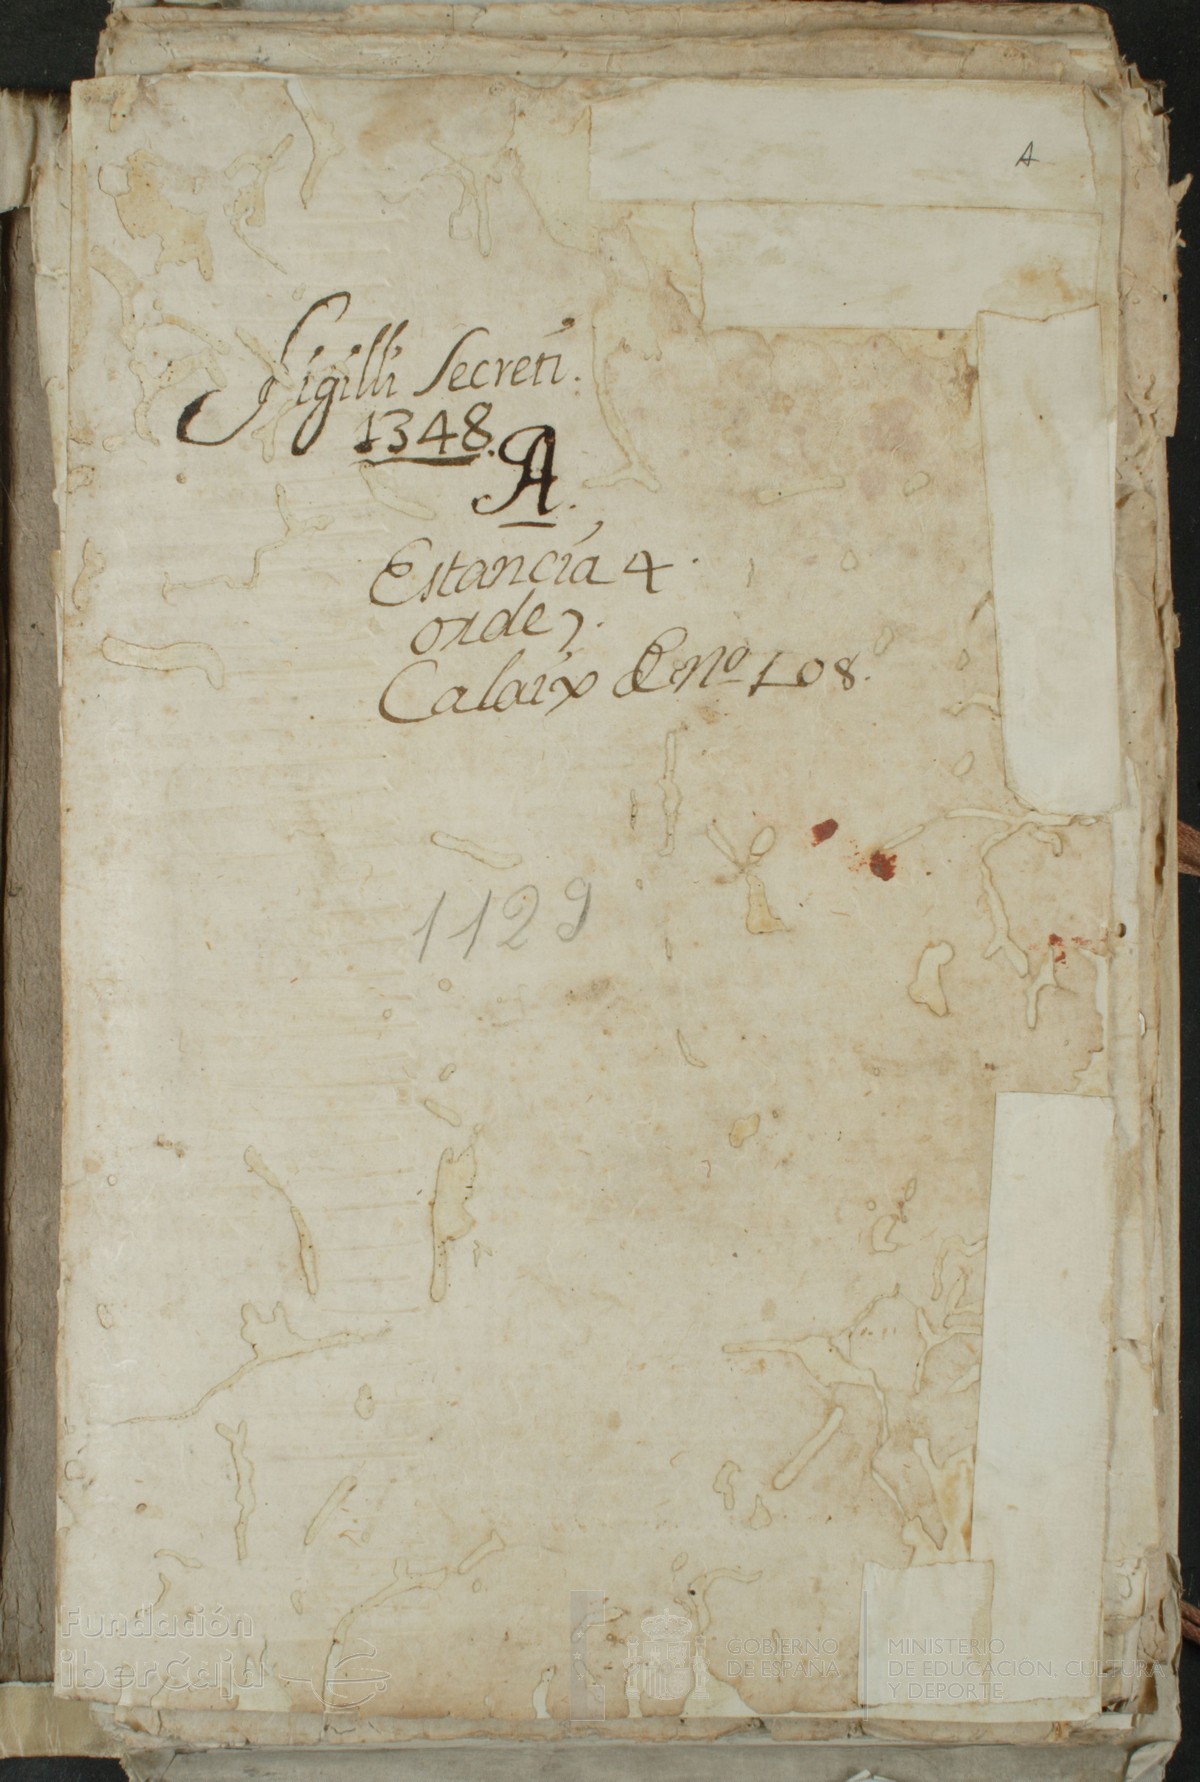 A
Sigilli Secreti.
1348.
A.
Estancia 4.
orde 7.
Calaix nº 108.
1129
Fundación
iberCaja
GOBIERNO
DE ESPAÑA
MINISTERIO
DE EDUCACIÓN, CULTURA
Y DEPORTE